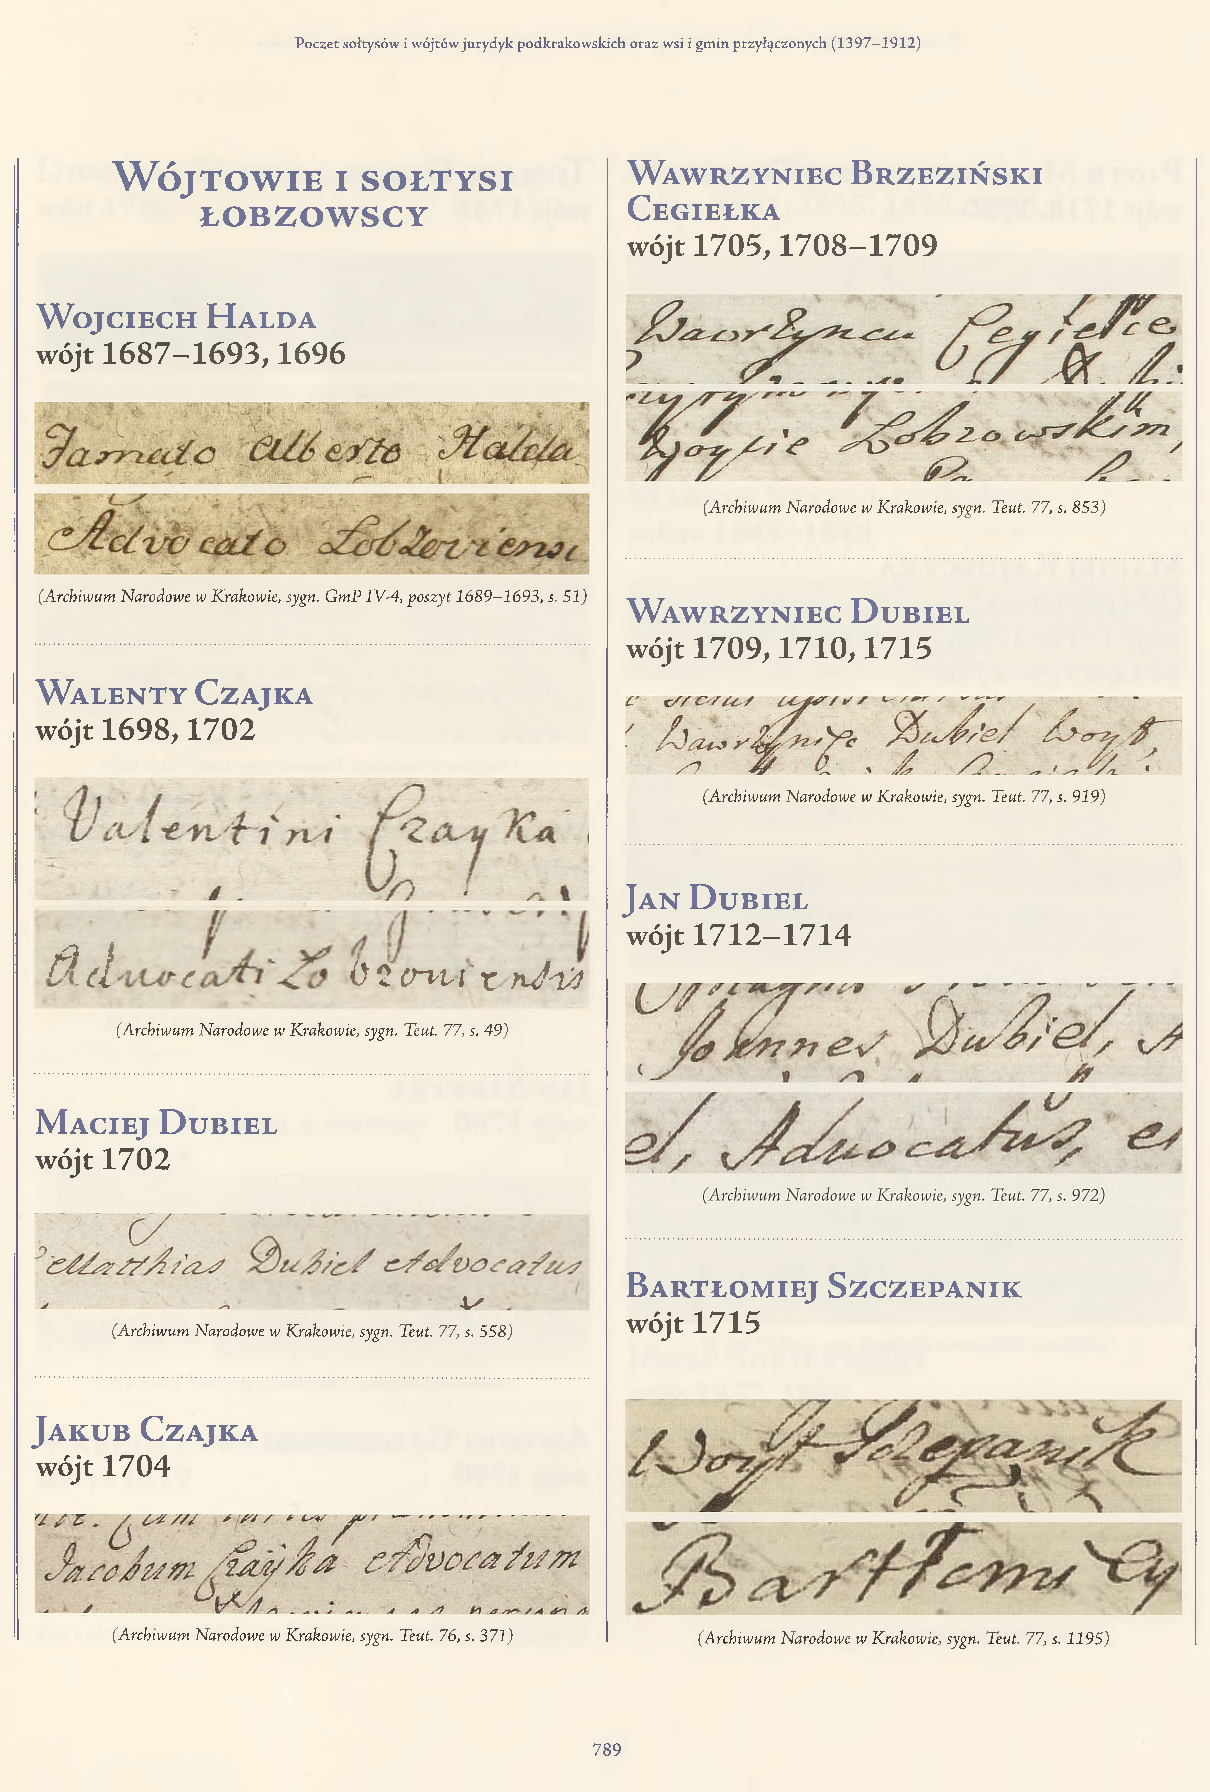 Poczet sołtysów i wójtów jurydyk podkrakowskich oraz wsi i gmin przyłączonych (1397–1912)
Wójtowie i sołtysi
łobzowscy
Wojciech Halda
wójt 1687–1693, 1696
Famato Alberto Halda
Advocato Lobzoviensi
(Archiwum Narodowe w Krakowie, sygn. GmP IV-4, poszyt 1689–1693, s. 51)
Walenty Czajka
wójt 1698, 1702
Valentini Czayka
Advocati Lobzoviensis
(Archiwum Narodowe w Krakowie, sygn. Teut. 77, s. 49)
Maciej Dubiel
wójt 1702
Matthias Dubiel Advocatus
(Archiwum Narodowe w Krakowie, sygn. Teut. 77, s. 558)
Jakub Czajka
wójt 1704
Jacobum Czayka Advocatum
(Archiwum Narodowe w Krakowie, sygn. Teut. 76, s. 371)
Wawrzyniec Brzeziński
Cegiełka
wójt 1705, 1708–1709
Wawrzyncu Cegielce
Woycie Lobzowskim,
(Archiwum Narodowe w Krakowie, sygn. Teut. 77, s. 853)
Wawrzyniec Dubiel
wójt 1709, 1710, 1715
Wawrzyniec Dubiel Woyt,
(Archiwum Narodowe w Krakowie, sygn. Teut. 77, s. 919)
Jan Dubiel
wójt 1712–1714
Joannes Dubiel, A
el, Advocatus, et
(Archiwum Narodowe w Krakowie, sygn. Teut. 77, s. 972)
Bartłomiej Szczepanik
wójt 1715
Woyt Sczepanik
Bartłomi ey
(Archiwum Narodowe w Krakowie, sygn. Teut. 77, s. 1195)
789